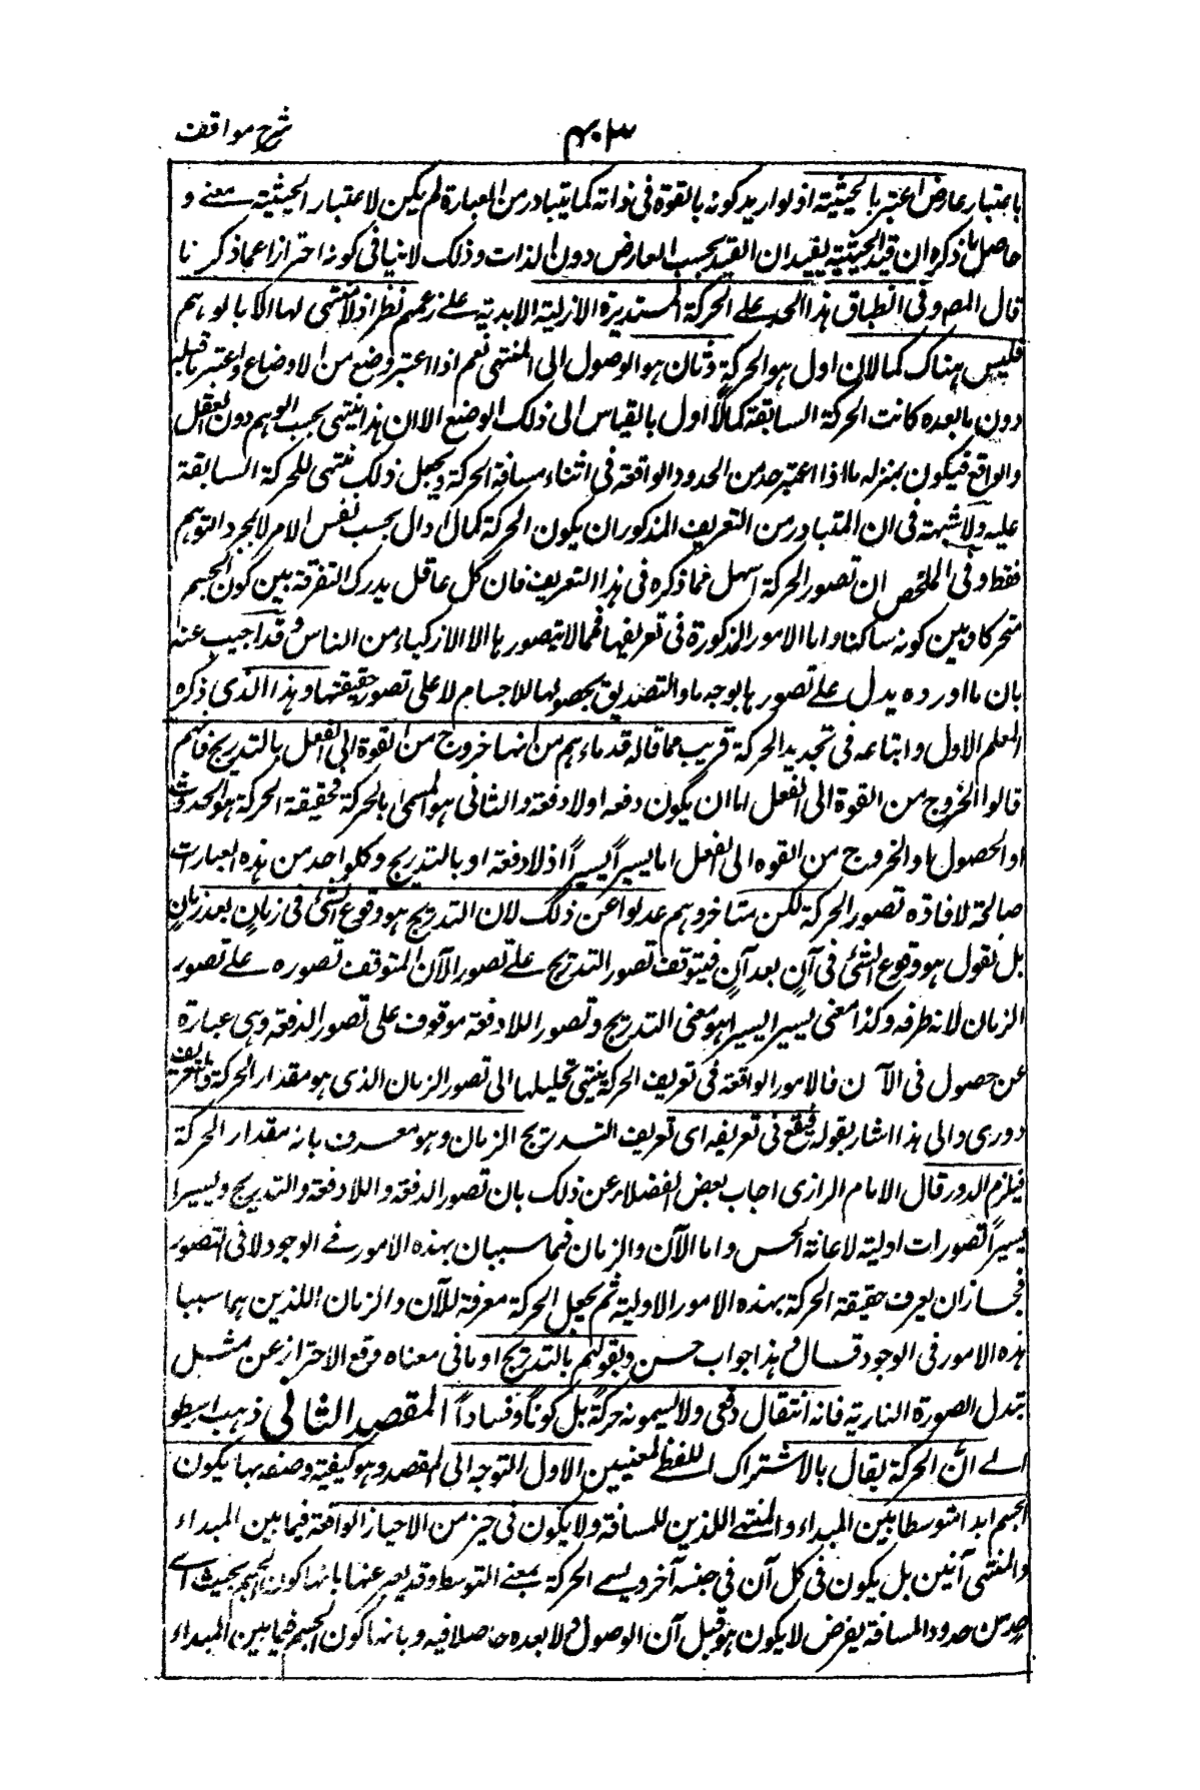 شرح مواقف
۴۰۳
باعتبار عارض اعتبر بالحيثية اذ لو اريد كونه بالقوة فى ذاته كما يتبادر من العبارة لم يكن لاعتبار الحيثية معنے و
حاصل ما ذكره ان قيد الحيثية يفيد ان القيد بحسب العارض دون الذات وذلك لا ينافى كونه احترازا عما ذكرنا
قال المصـ وفى انطباق هذا الحد علے الحركة المستديرة الازلية الابدية علے زعمهم نظر اذ لا منتهى لها الا بالوهم
فليس هناك كمالان اول هو الحركة وثان هو الوصول الى المنتهى نعم اذا اعتبر وضع من الاوضاع واعتبر ما قبله
دون ما بعده كانت الحركة السابقة كمالًا اول بالقياس الى ذلك الوضع الا ان هذا منتهى بحسب الوهم دون العقل
والواقع فيكون بمنزلة ما اذا اعتبر حد من الحدود الواقعة فى اثناء مسافة الحركة ويجعل ذلك منتهى للحركة السابقة
عليه ولا شبهة فى ان المتبادر من التعريف المذكور ان يكون الحركة كمالا اول بحسب نفس الامر لا بمجرد التوهم
فقط وفى الملخص ان تصور الحركة اسهل مما ذكره فى هذا التعريف فان كل عاقل يدرك التفرقة بين كون الجسم
متحركا وبين كونه ساكنا واما الامور المذكورة فى تعريفها فمما لا يتصورها الا الاذكياء من الناس وقد اجيب عنه
بان ما اورده يدل علے تصورها بوجه ما والتصديق بحصولها للاجسام لا على تصور حقيقتها وهذا الذى ذكره
المعلم الاول واتباعه فى تحديد الحركة قريب مما قاله قدماءهم من انها خروج من القوة الى الفعل بالتدريج فانهم
قالوا الخروج من القوة الى الفعل اما ان يكون دفعه او لا دفعة والثانى هو المسمى بالحركة فحقيقة الحركة هو الحدوث
او الحصول او الخروج من القوه الى الفعل اما يسيراً يسيراً او لا دفعة او بالتدريج وكل واحد من هذه العبارات
صالحة لافادة تصور الحركة لكن متاخروهم عدلوا عن ذلك لان التدريج هو وقوع الشئ فى زمانٍ بعد زمانٍ
بل نقول هو وقوع الشئ فى آنٍ بعد آنٍ فيتوقف تصور التدريج علے تصور الآن المتوقف تصوره علے تصور
الزمان لانه طرفه وكذا معنى يسيرا يسيرا هو معنى التدريج وتصور اللادفعة موقوف على تصور الدفعة وهى عبارة
عن حصول فى الآن فالامور الواقعة فى تعريف الحركة ينتهى تحليلها الى تصور الزمان الذى هو مقدار الحركة فالتعريف
دورى والى هذا اشار بقوله فيقع فى تعريفه اى تعريف التدريج الزمان وهو معرف بانه مقدار الحركة
فيلزم الدور قال الامام الرازى اجاب بعض الفضلاء عن ذلك بان تصور الدفعة واللادفعة والتدريج ويسيرا
يسيراً تصورات اولية لاعانة الحس واما الآن والزمان فهما سببان بهذه الامور فے الوجود لا فى التصور
فجاز ان يعرف حقيقة الحركة بهذه الامور الاولية ثم يجعل الحركة معرفة للآن والزمان اللذين هما سببا
هذه الامور فى الوجود قال وهذا جواب حسن وبقولهم بالتدريج او ما فى معناه وقع الاحتراز عن مثل
تبدل الصورة النارية فانه انتقال دفعى ولا يسمونه حركةً بل كوناً وفساداً المقصد الثانى ذهب ارسطو
الے ان الحركة يقال بالاشتراك اللفظے لمعنيين الاول التوجه الى المقصد وهو كيفية وصفه بها يكون
الجسم ابدا متوسطا بين المبداء والمنتهے اللذين للمسافة ولا يكون فى حيز من الاحياز الواقعة فيما بين المبداء
والمنتهى آنين بل يكون فى كل آن فے حيز آخر ويسمے الحركة بمعنے التوسط وقد يعبر عنها بانها كون الجسم بحيث اے
حد من حدود المسافة يفرض لا يكون هو قبل آن الوصول ولا بعده حاصلا فيه وبانها كون الجسم فيما بين المبداء